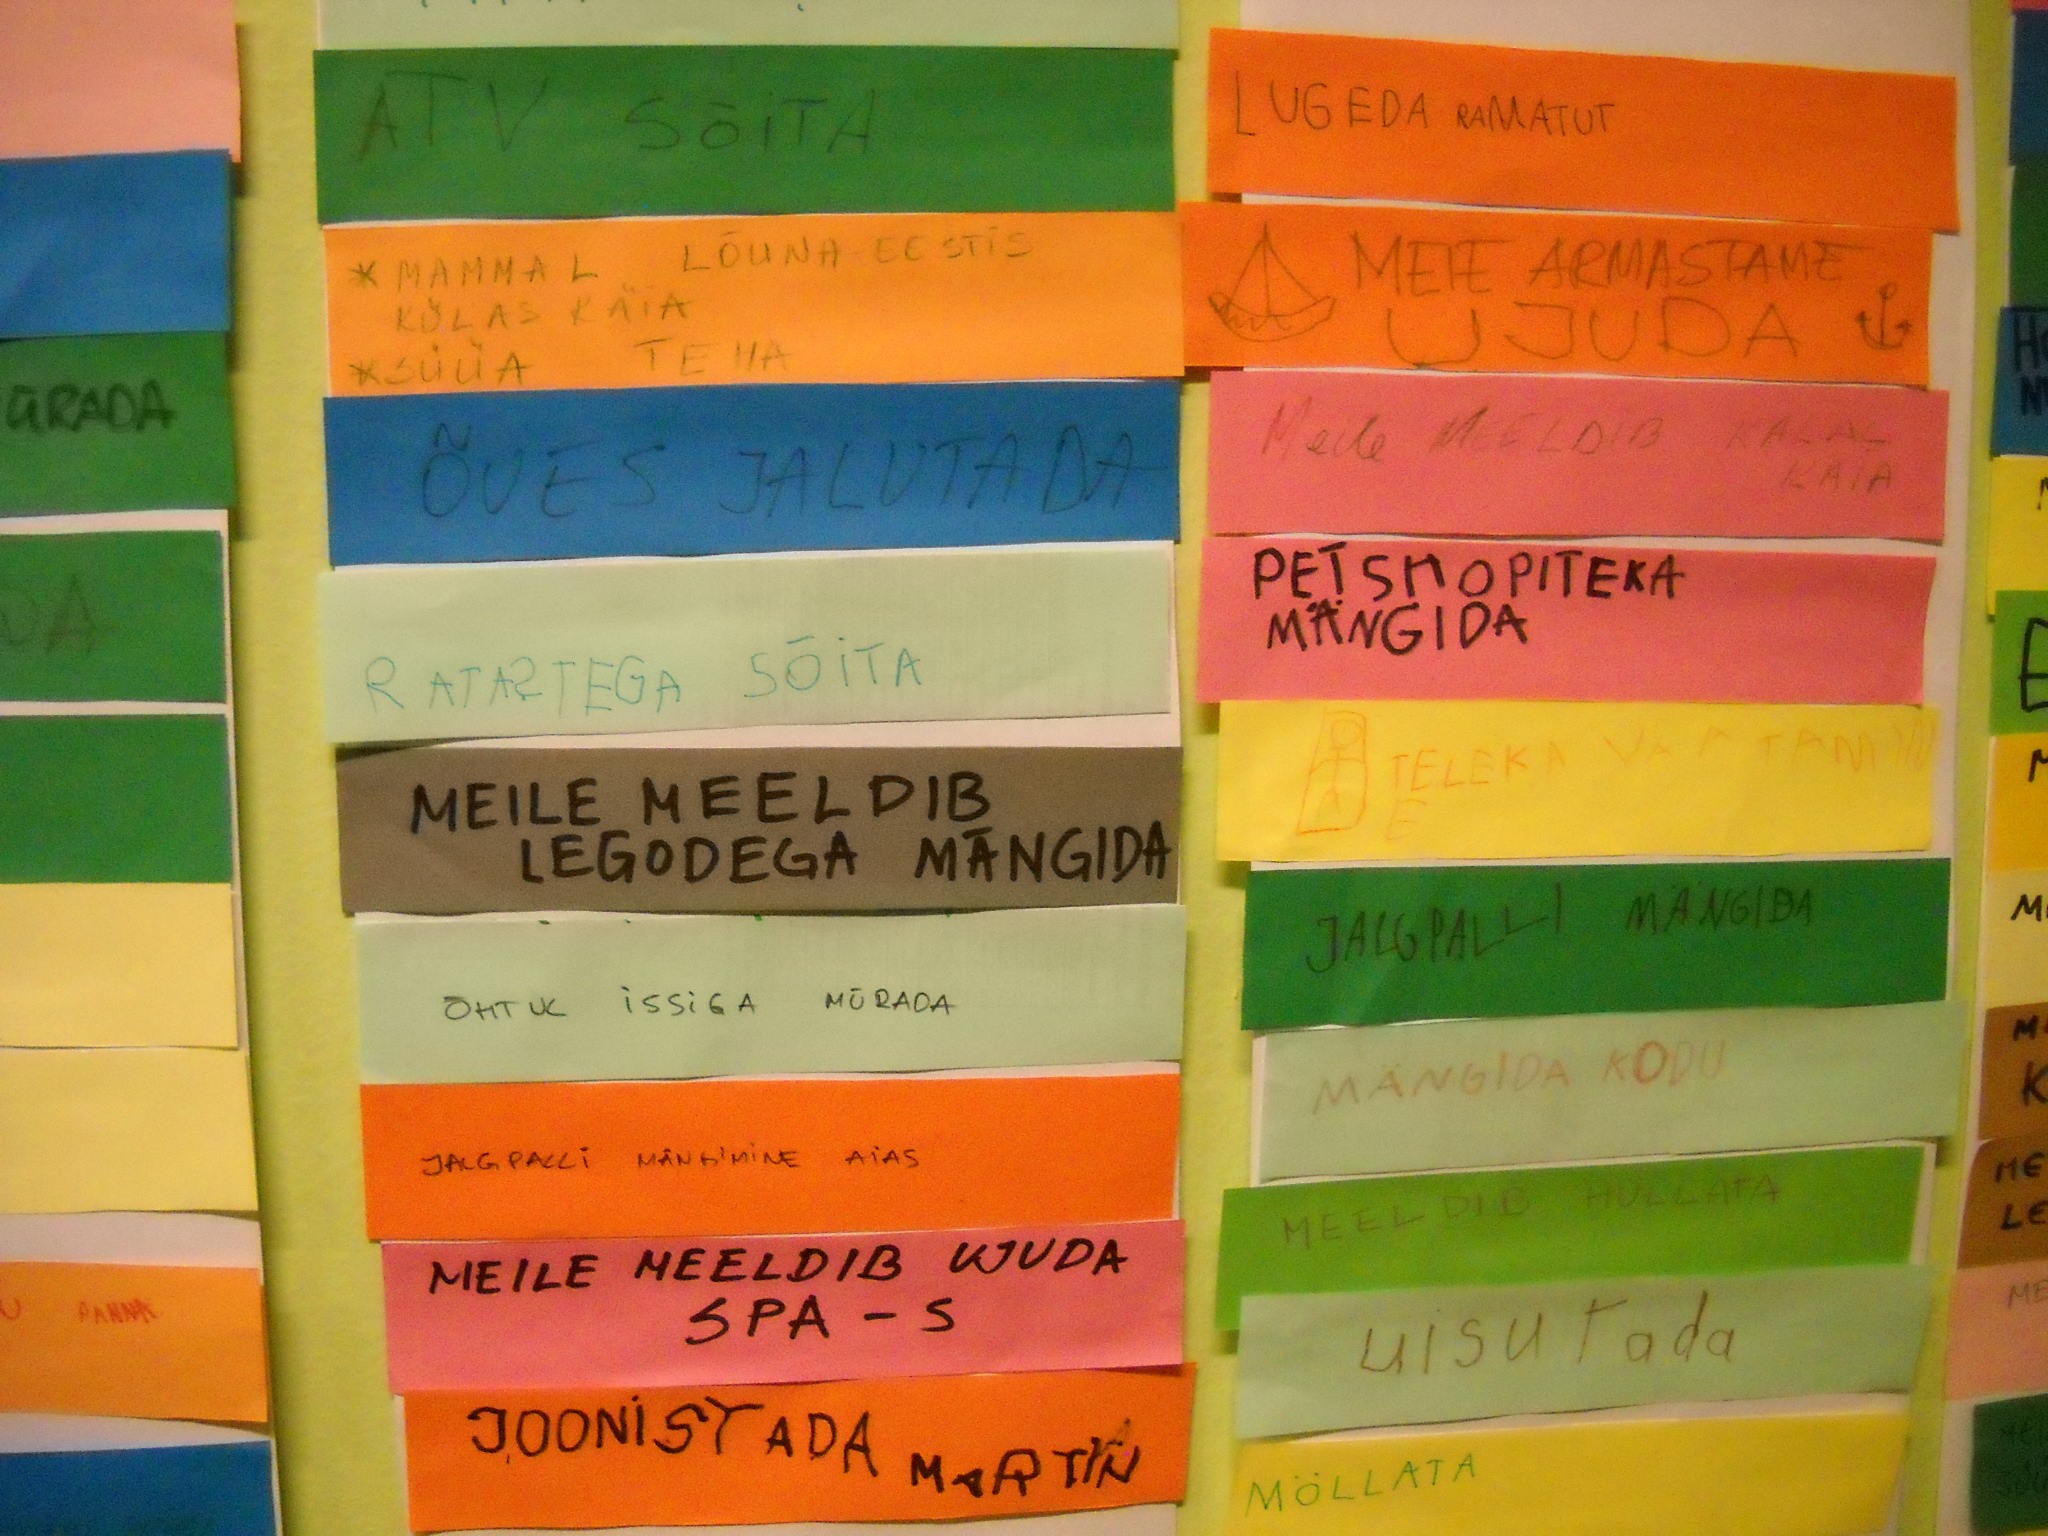 ÜRADA
DA
U PANNA
ATV SÕITA
* MAMMAL LÕUNA-EESTIS
KÜLAS KÄIA
* SÜÜA TEHA
ÕUES JALUTADA
RATARTEGA SÕITA
MEILE MEELDIB
LEGODEGA MÄNGIDA
ÕHTUL ISSIGA MÜRADA
JALGPALLI MÄNGIMINE AIAS
MEILE MEELDIB UJUDA
SPA-S
JOONISTADA MARTIN
LUGEDA RAMATUT
MEIE ARMASTAME
UJUDA
Meile MEELDIB KALAL
KÄIA
PETSHOPITEKA
MÄNGIDA
TELEKA VAATAMIN
E
JALGPALLI MÄNGIDA
MÄNGIDA KODU
MEELDIB HULLATA
UISUTada
MÖLLATA